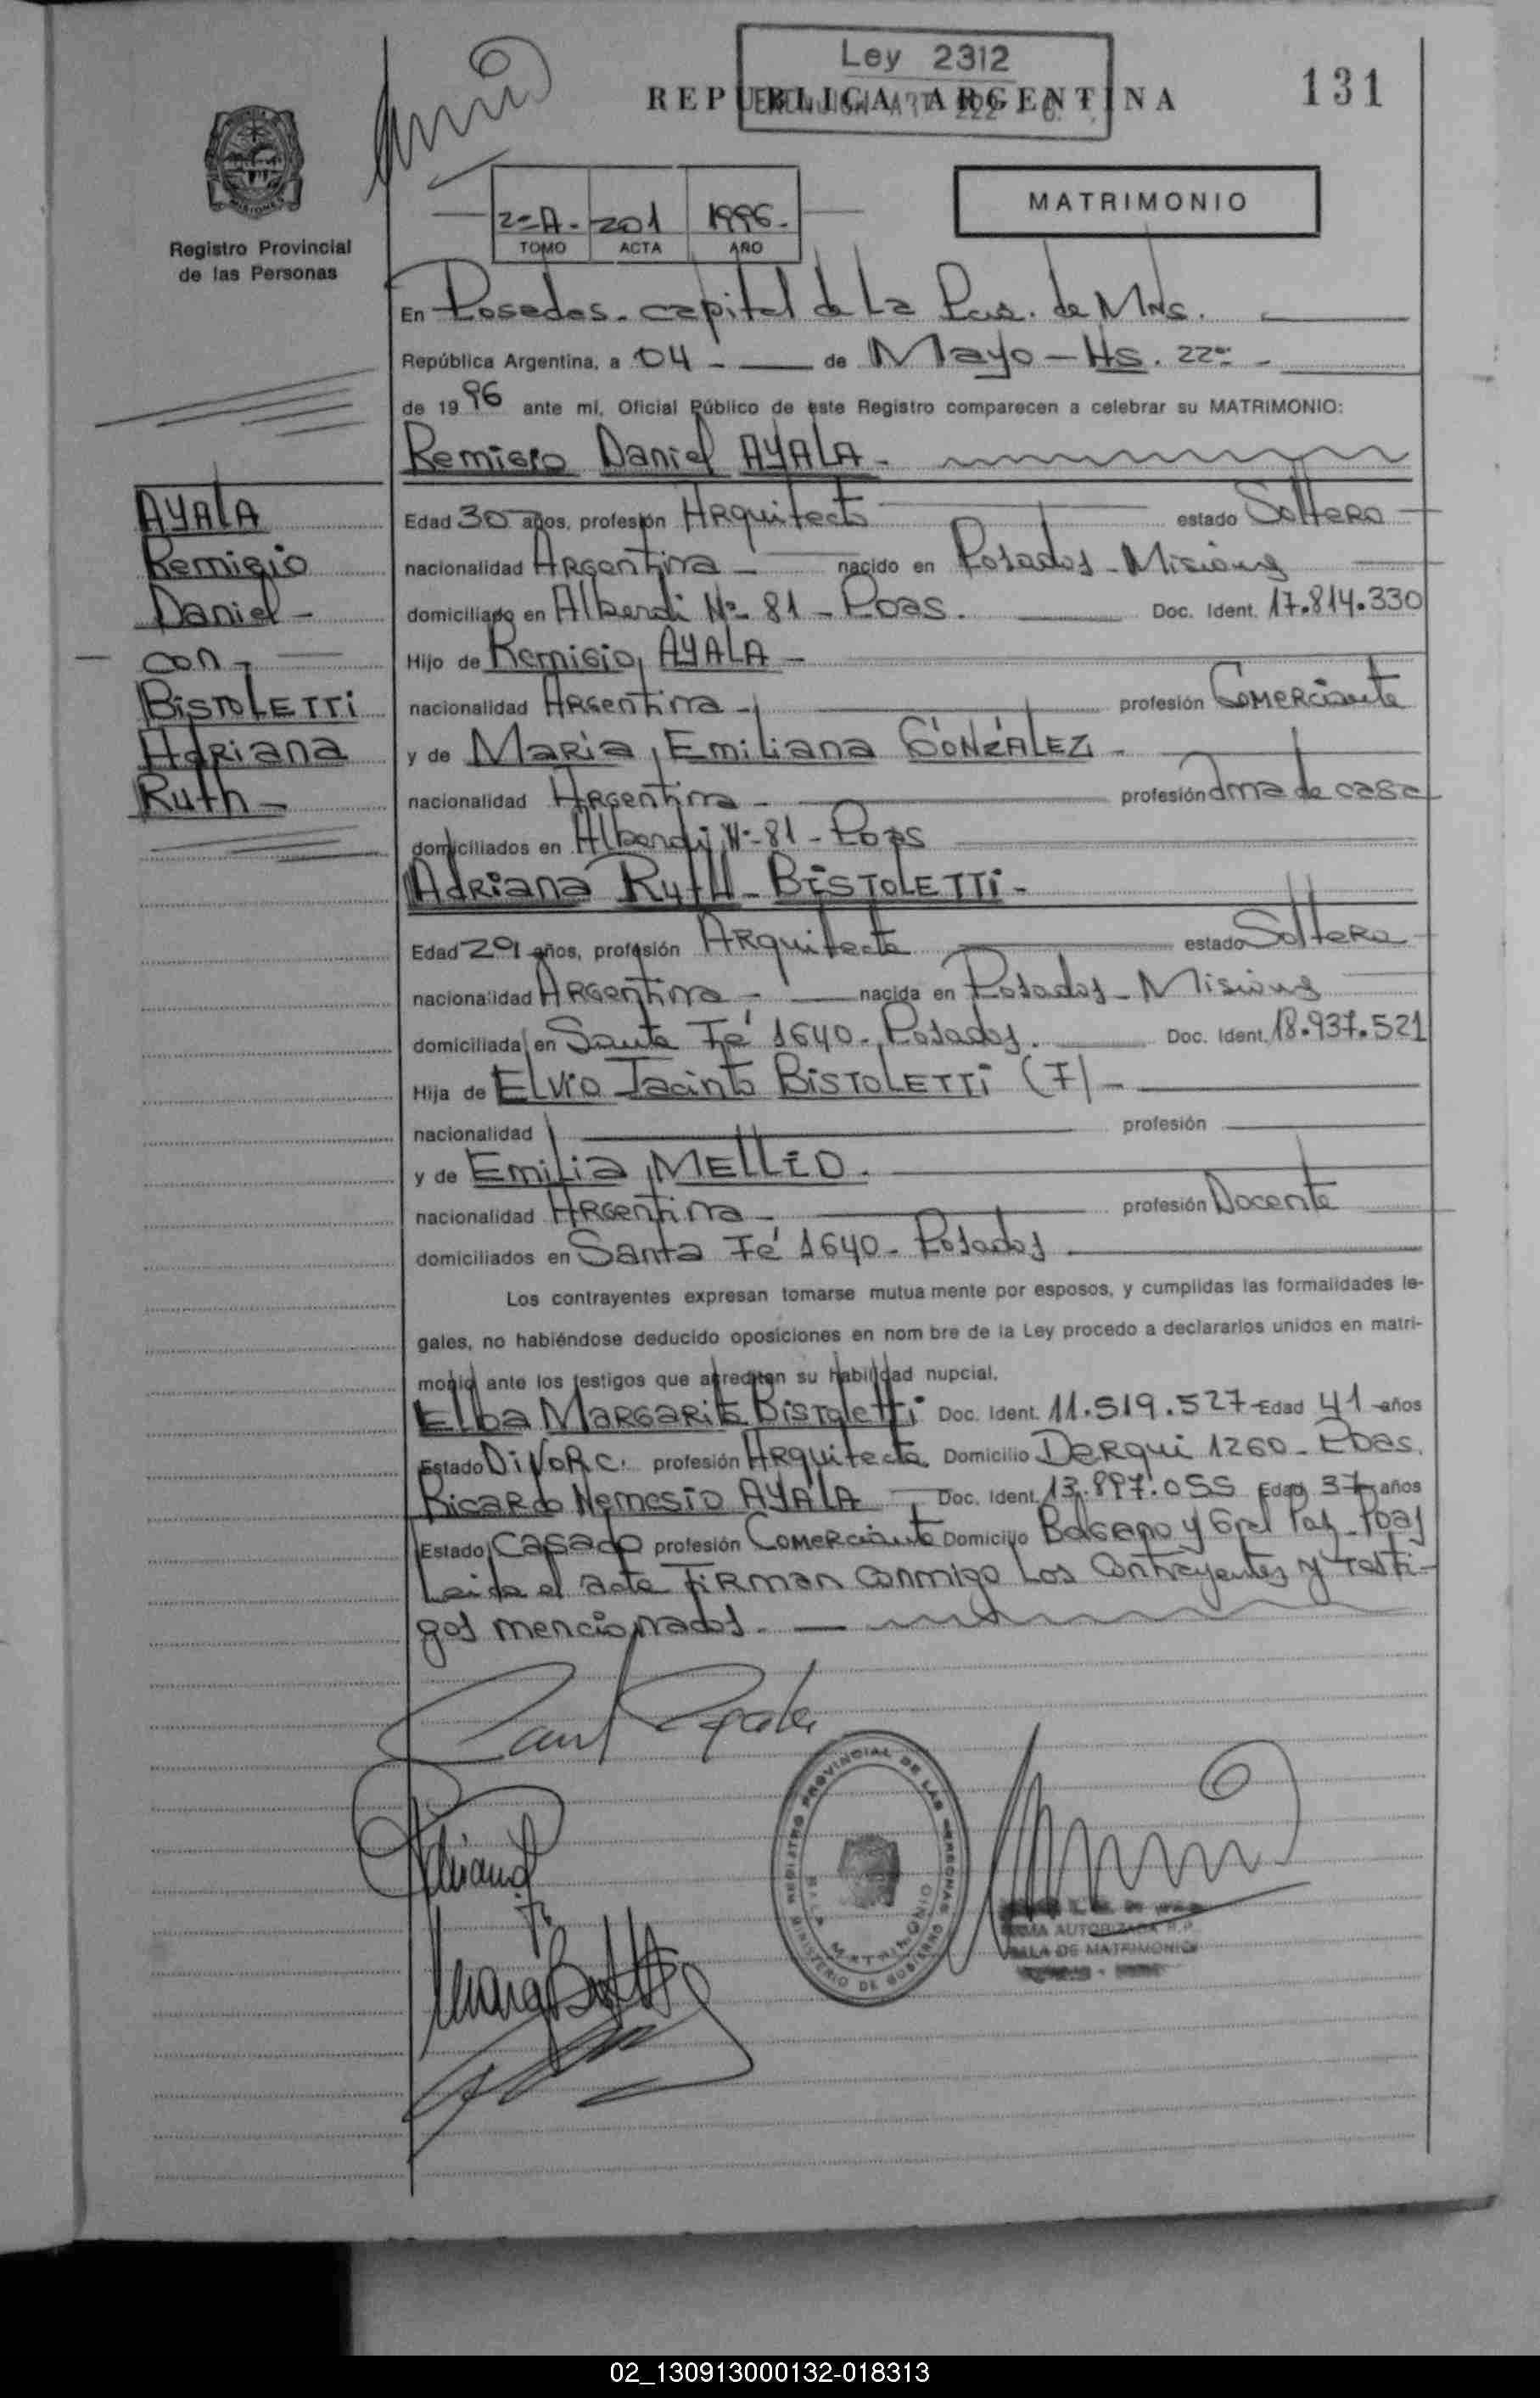 Ley 2312
REPUBLICA ARGENTINA
131
MATRIMONIO
2=A- 201 1996-
TOMO ACTA AÑO
Registro Provincial
de las Personas
En Posadas- capital de La Pcia. de Mnes.
República Argentina, a 04 - de Mayo - Hs. 22
de 1996 ante mi, Oficial Público de este Registro comparecen a celebrar su MATRIMONIO:
Remigio Daniel AYALA-
AYALA
Remigio
Daniel-
con-
BISTOLETTI
Adriana
Ruth-
Edad 30 años, profesión Arquitecto estado Soltero
nacionalidad Argentina- nacido en Posadas- Misiones
domiciliado en Alberdi Nº 81- Pdas. Doc. Ident. 17.814.330
Hijo de Remigio, AYALA-
nacionalidad Argentina- profesión Comerciante
y de Maria, Emiliana GONZALEZ-
nacionalidad Argentina- profesión Ama de casa
domiciliados en Alberdi Nº 81- Pdas
Adriana Ruth- BISTOLETTI-
Edad 29 años, profesión Arquitecta estado Soltera
nacionalidad Argentina- nacida en Posadas- Misiones
domiciliada en Santa Fé 1640- Posadas. Doc. Ident. 18.937.521
Hija de Elvio Jacinto BISTOLETTI (F)-
nacionalidad profesión
y de Emilia, MELLID.
nacionalidad Argentina- profesión Docente
domiciliados en Santa Fé 1640- Posadas
Los contrayentes expresan tomarse mutua mente por esposos, y cumplidas las formalidades le-
gales, no habiéndose deducido oposiciones en nom bre de la Ley procedo a declararlos unidos en matri-
monio ante los testigos que acrediten su habilidad nupcial.
Elba Margarita Bistoletti Doc. Ident. 11.519.527 Edad 41 años
Estado Divorc. profesión Arquitecta Domicilio Derqui 1260- Pdas.
Ricardo Nemesio AYALA- Doc. Ident. 13.897.055 Edad 37 años
Estado Casado profesión Comerciante Domicilio y Gral Paz- Pdas
Leida el acta Firman conmigo Los Contrayentes y testi-
gos mencionados.-
REGISTRO PROVINCIAL DE LAS PERSONAS
MATRIMONIO
MINISTERIO DE GOBIERNO
AUTORIZADA R.P.
SALA DE MATRIMONIO
02_130913000132-018313